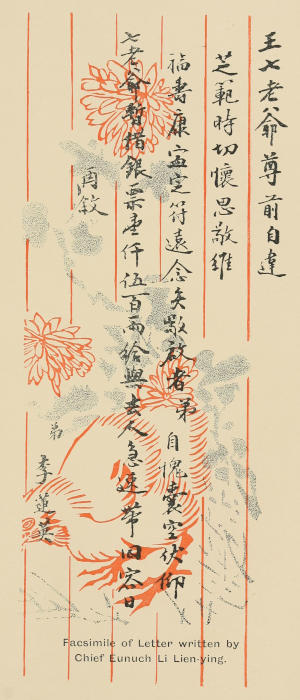 王七老翁尊前自違
芝範時切懷思敬維
福壽康寧定符遠念矣敬啟者弟自愧囊空伏仰
七老翁暫借銀票壹仟伍百兩給與去人急速帶回容日
敘
弟李蓮英
Facsimile of Letter written by
Chief Eunuch Li Lien-ying.